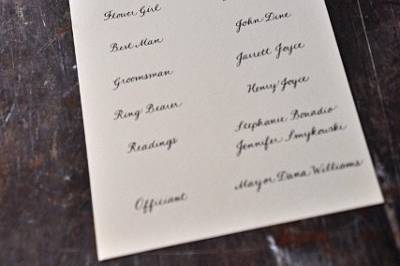 Flower Girl
Best Man John Dine
Groomsman Jarrett Joyce
Ring Bearer Henry Joyce
Readings Stephanie Bonadio
Jennifer Smykowski
Officiant Mayor Dana Williams